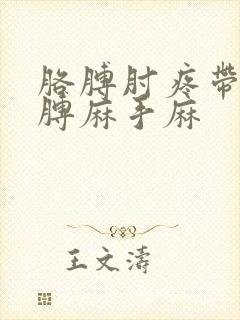 胳膊肘疼带
膊麻手麻
王文涛